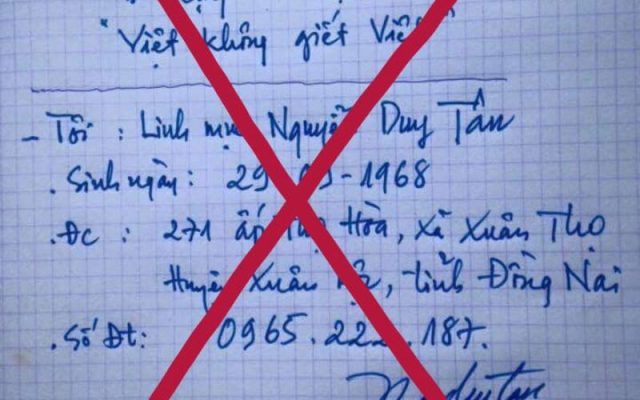 "Việt không giết Việt"
- Tôi : Linh mục Nguyễn Duy Tân
. Sinh ngày : 29 -1968
. ĐC : 271 ấp Thọ Hòa, Xã Xuân Thọ
Huyện Xuân Lộc, tỉnh Đồng Nai
. Số Đt: 0965.222.187.